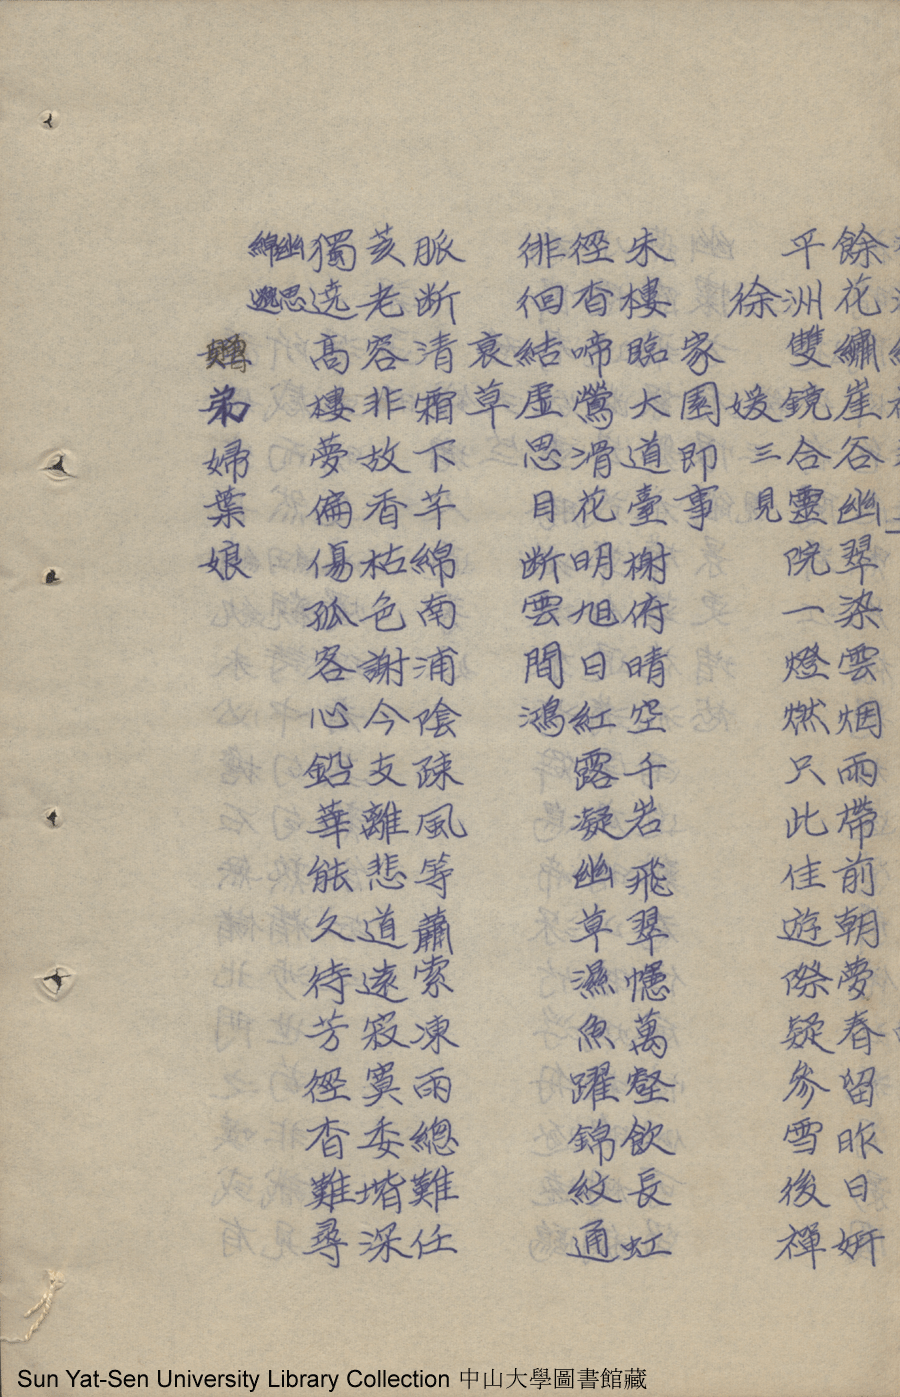 餘花繡崖谷幽翠染雲烟雨帶前朝夢春留昨日妍
平洲雙鏡合靈院一燈燃只此佳遊際疑參雪後禪
徐媛三見
家園即事
朱樓臨大道臺榭俯晴空千岩飛翠幰萬壑飲長虹
徑杳啼鶯滑花明旭日紅露凝幽草濕魚躍錦紋通
徘徊結虛思目断雲間鴻
衰草
脈断清霜下芊綿南浦陰疎風等蕭索凍雨總難任
亥老容非故香枯色謝今支離悲道遠寂寞委堦深
獨遶高樓夢偏傷孤客心鉛華能久待芳徑杳難尋
幽思綿邈
弟婦葉娘
Sun Yat-Sen University Library Collection 中山大學圖書館藏